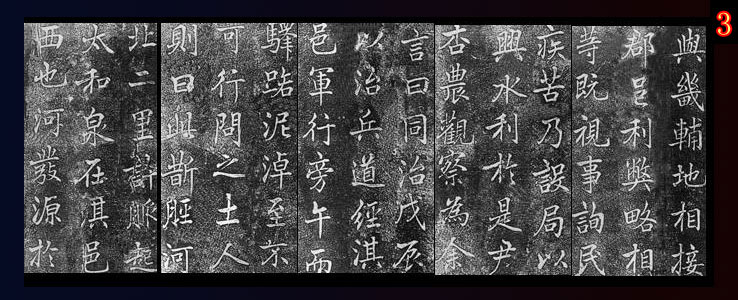 與畿輔地相接
郡邑利弊略相
等既視事詢民
疾苦乃設局以
興水利於是尹
杏農觀察為余
言曰同治戊辰
以治兵道經淇
邑軍行旁午而
驛路泥淖至
可行問之土人
則曰此斮脛河
北二里許脈起
太和泉在淇邑
西也河發源於
3